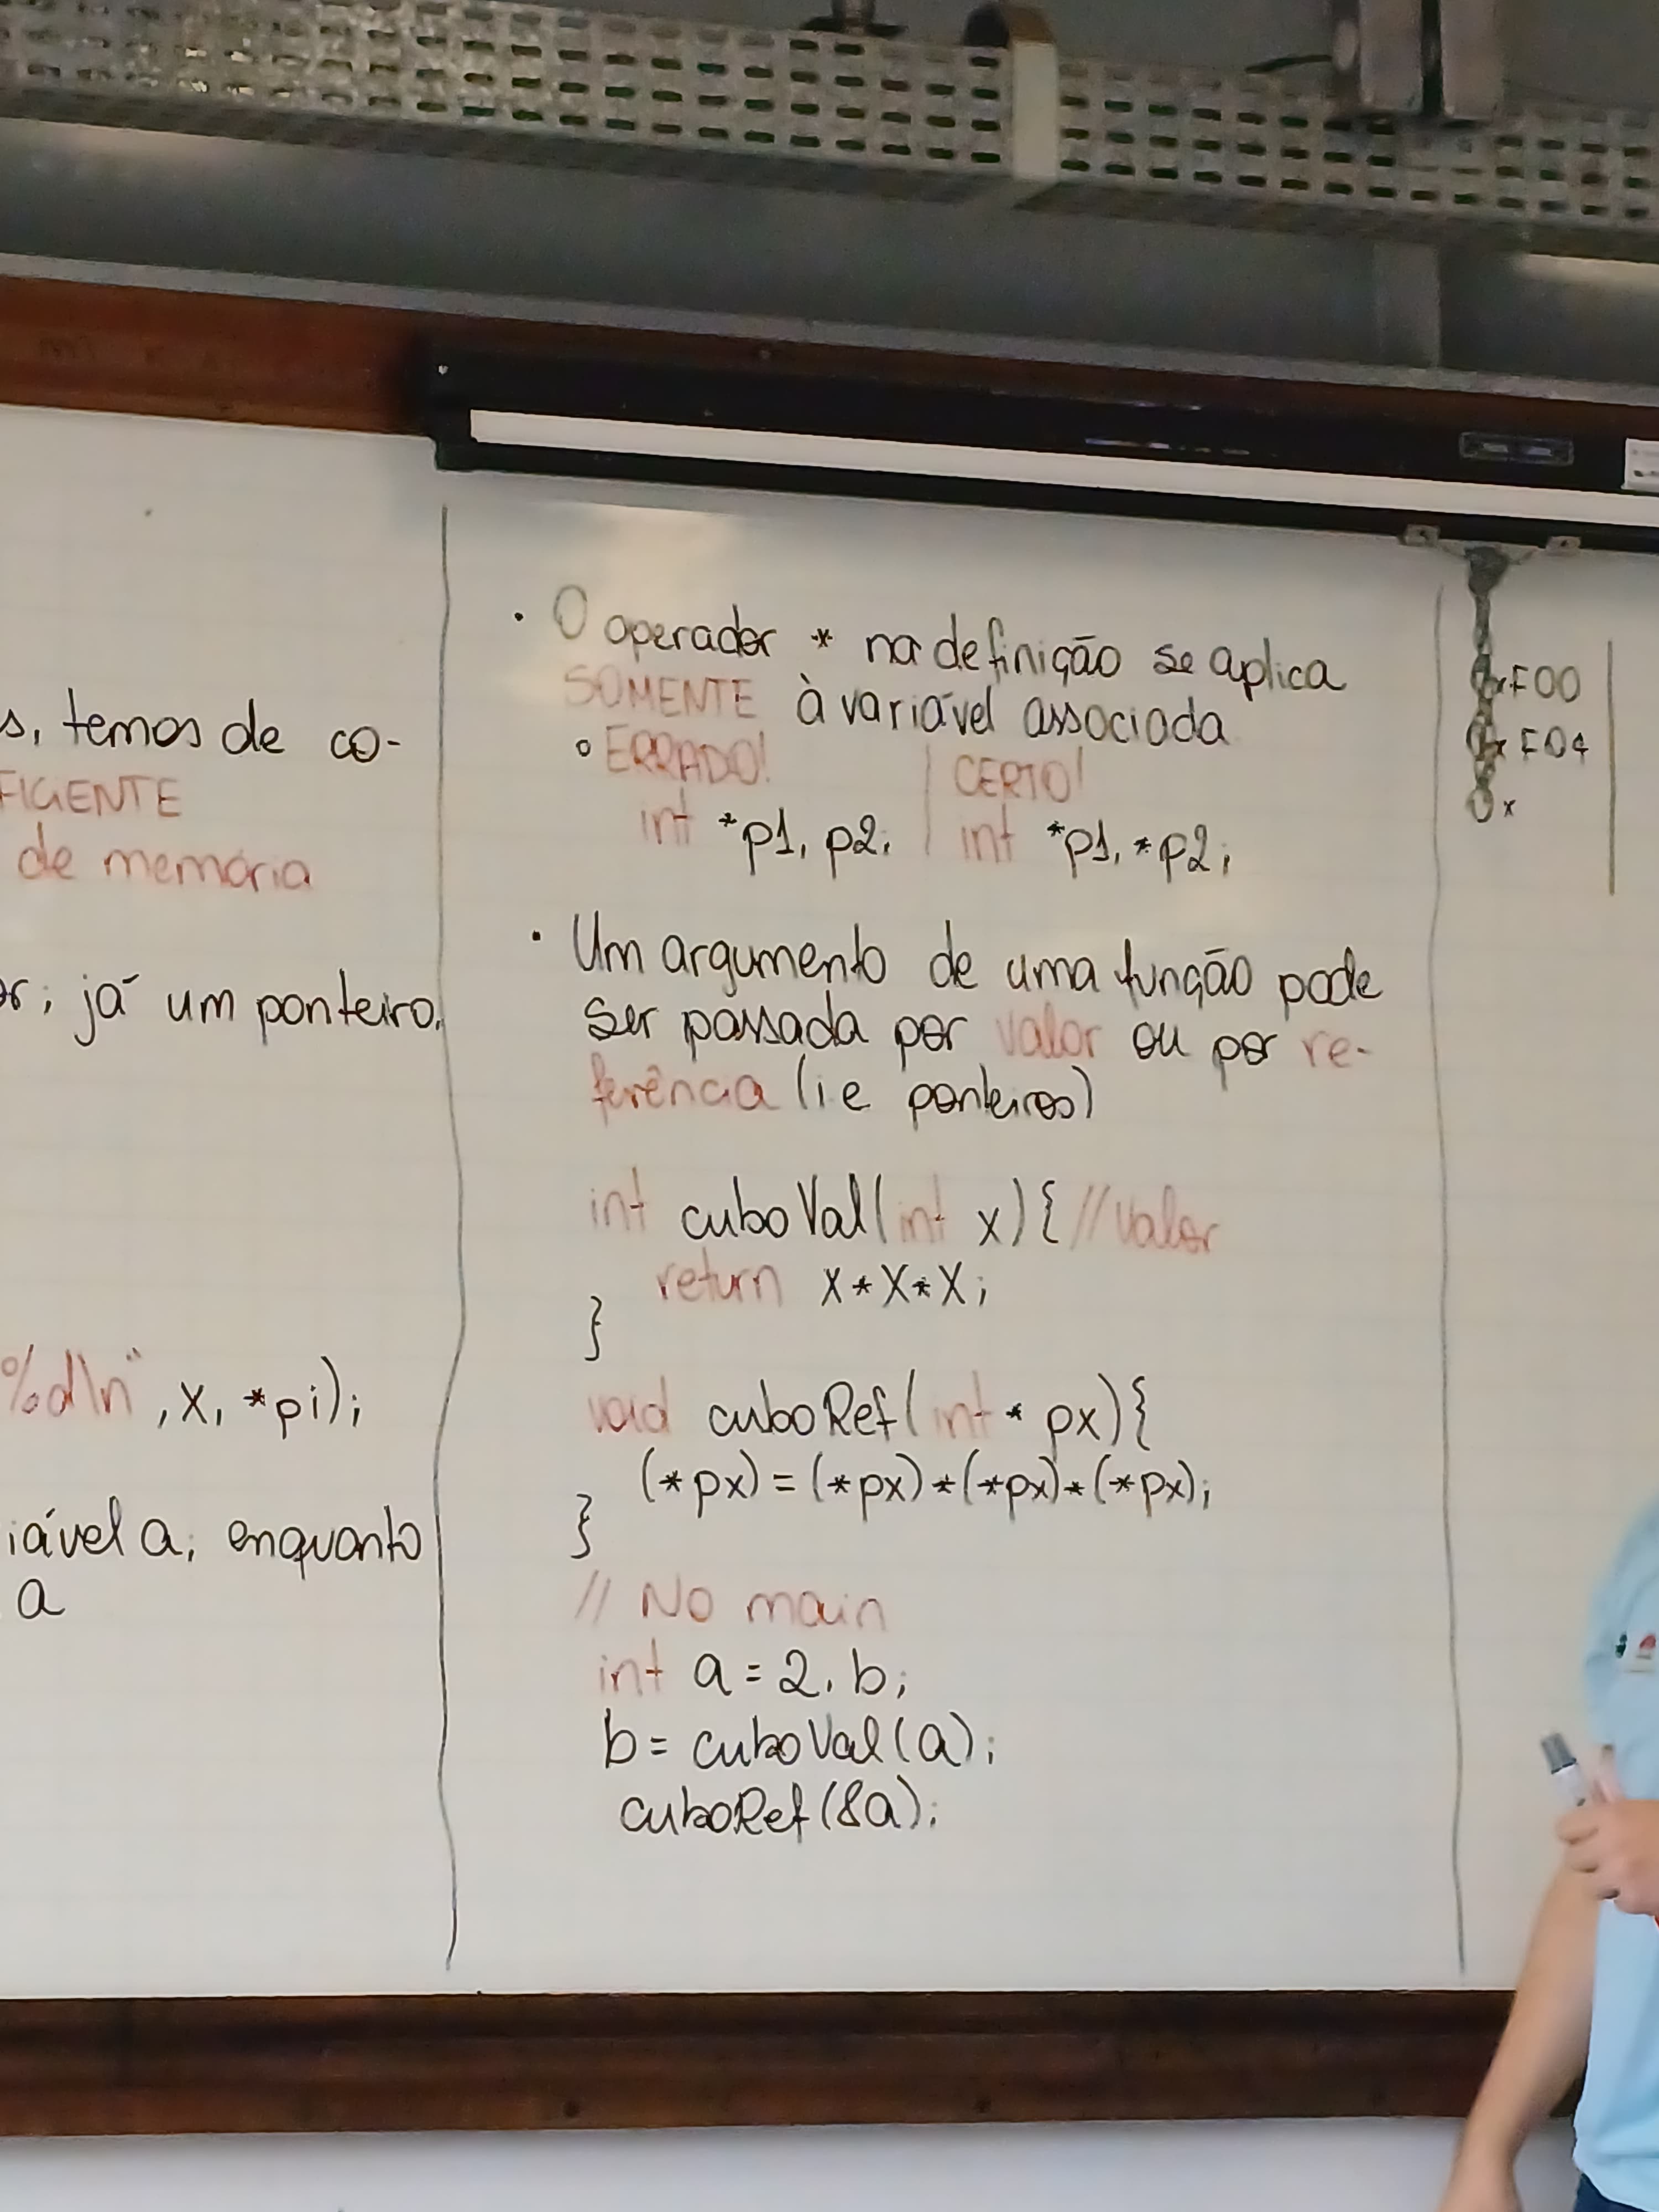 s, temos de co-
FICIENTE
de memória
or; já um ponteiro,
%d\n", x, *pi);
iável a; enquanto
a
• O operador * na definição se aplica
SOMENTE à variável associada
o ERRADO! | CERTO!
int *p1, p2; | int *p1, *p2;
• Um argumento de uma função pode
ser passada por valor ou por re-
ferência (i.e ponteiros)
int cuboVal(int x){ //valor
return x*x*x;
}
void cuboRef(int* px){
(*px) = (*px)*(*px)*(*px);
}
// No main
int a = 2, b;
b = cuboVal(a);
cuboRef(&a);
xF00
xF04
x